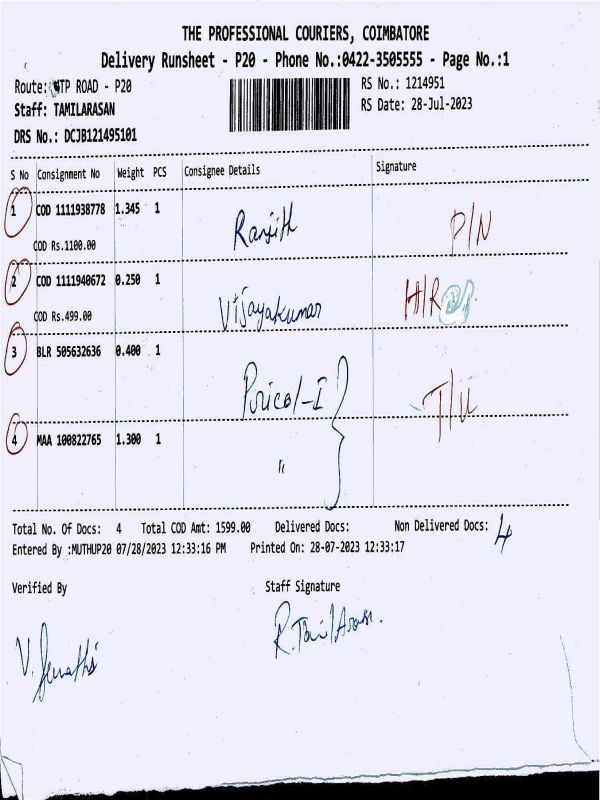 THE PROFESSIONAL COURIERS, COIMBATORE
Delivery Runsheet - P20 - Phone No.:0422-3505555 - Page No.:1
Route: TP ROAD - P20 RS No.: 1214951
Staff: TAMILARASAN RS Date: 28-Jul-2023
DRS No.: DCJB121495101
S No Consignment No Weight PCS Consignee Details Signature
1 COD 1111938778 1.345 1 Ranjith P/N
COD Rs.1100.00
2 COD 1111940672 0.250 1 Vijayakumar H/R
COD Rs.499.00
3 BLR 505632636 0.400 1 Pricol-I T/U
4 MAA 100822765 1.300 1 "
Total No. Of Docs: 4 Total COD Amt: 1599.00 Delivered Docs: Non Delivered Docs: 4
Entered By :MUTHUP20 07/28/2023 12:33:16 PM Printed On: 28-07-2023 12:33:17
Verified By Staff Signature
V. R.TamilArasan.